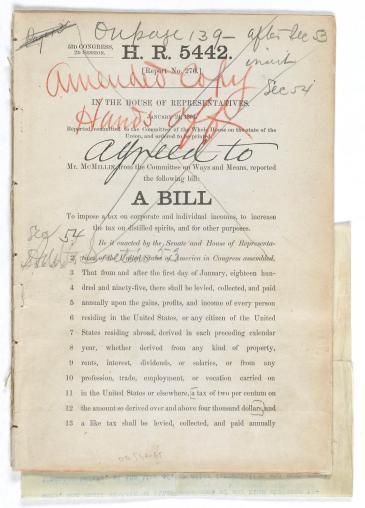 On page 139 - after Sec 53
insert
Sec 54
53D CONGRESS,
2D SESSION.
H. R. 5442.
[Report No. 276.]
Amended Copy
Hands off
IN THE HOUSE OF REPRESENTATIVES.
JANUARY 24, 1894.
Reported, committed to the Committee of the Whole House on the state of the
Union, and ordered to be printed.
agreed to
Mr. MCMILLIN, from the Committee on Ways and Means, reported
the following bill:
A BILL
To impose a tax on corporate and individual incomes, to increase
the tax on distilled spirits, and for other purposes.
Sec 54
1 Be it enacted by the Senate and House of Representa-
2 tives of the United States of America in Congress assembled,
3 That from and after the first day of January, eighteen hun-
4 dred and ninety-five, there shall be levied, collected, and paid
5 annually upon the gains, profits, and income of every person
6 residing in the United States, or any citizen of the United
7 States residing abroad, derived in each preceding calendar
8 year, whether derived from any kind of property,
9 rents, interest, dividends, or salaries, or from any
10 profession, trade, employment, or vocation carried on
11 in the United States or elsewhere, a tax of two per centum on
12 the amount so derived over and above four thousand dollars, and
13 a like tax shall be levied, collected, and paid annually